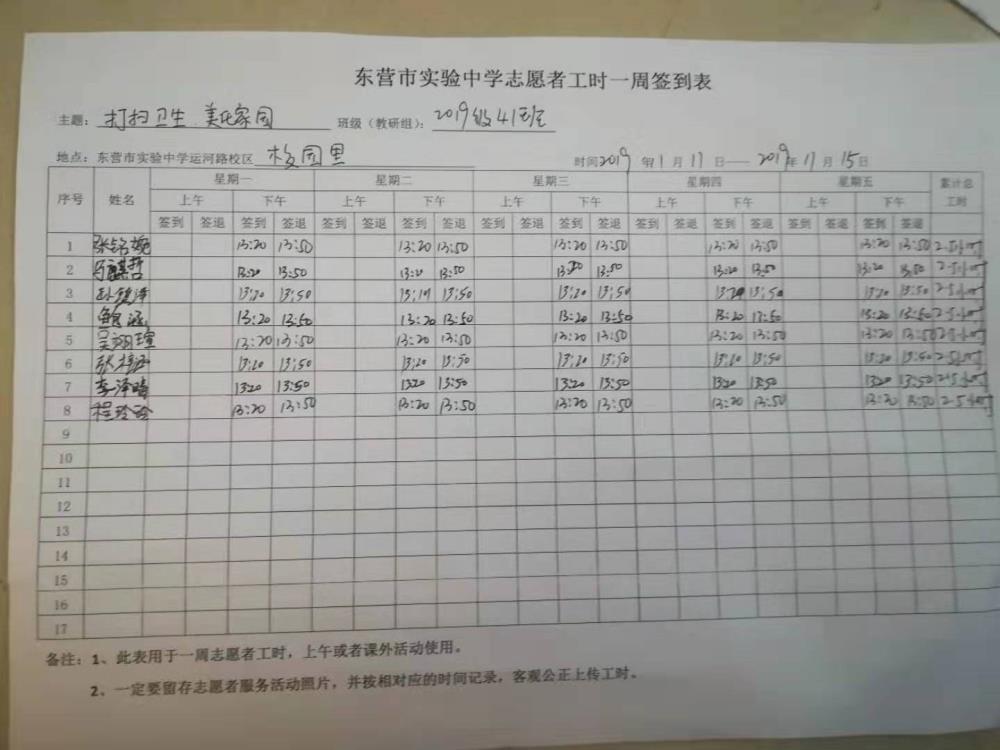 东营市实验中学志愿者工时一周签到表
主题：打扫卫生 美化家园 班级（教研组）：2019级41班
地点：东营市实验中学运河路校区 校园里 时间2019年11月11日——2019年11月15日
序号 姓名 星期一 星期二 星期三 星期四 星期五 累计总工时
上午 下午 上午 下午 上午 下午 上午 下午 上午 下午
签到 签退 签到 签退 签到 签退 签到 签退 签到 签退 签到 签退 签到 签退 签到 签退 签到 签退 签到 签退
1 张铭婉 13:20 13:50 13:20 13:50 13:20 13:50 13:20 13:50 13:20 13:50 2.5小时
2 13:20 13:50 13:20 13:50 13:20 13:50 13:20 13:50 13:20 13:50 2.5小时
3 13:20 13:50 13:50 13:20 13:50 13:20 13:50 13:20 13:50 2.5小时
4 鲍涵 13:20 13:50 13:20 13:50 13:20 13:50 13:20 13:50 13:20 13:50 2.5小时
5 吴翊瑄 13:20 13:50 13:20 13:50 13:20 13:50 13:20 13:50 13:20 13:50 2.5小时
6 13:20 13:50 13:20 13:50 13:20 13:50 13:20 13:50 13:20 13:50 2.5小时
7 李泽晴 13:20 13:50 13:20 13:50 13:20 13:50 13:20 13:50 13:20 13:50 2.5小时
8 程玲玲 13:20 13:50 13:20 13:50 13:20 13:50 13:20 13:50 13:20 13:50 2.5小时
9
10
11
12
13
14
15
16
17
备注：1、此表用于一周志愿者工时，上午或者课外活动使用。
2、一定要留存志愿者服务活动照片，并按相对应的时间记录，客观公正上传工时。